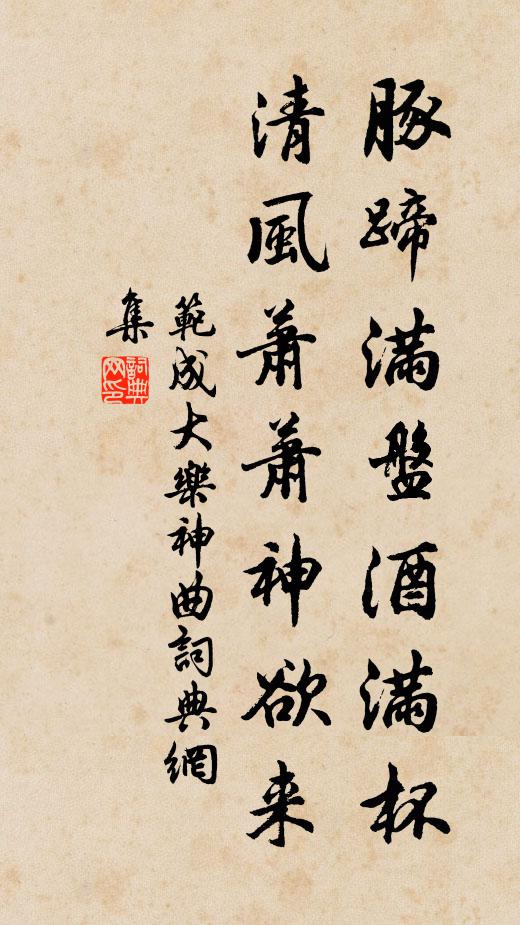 豚蹄满盤酒满杯
清風蕭蕭神欲来
範成大樂神曲詞典網
集
詞典网印